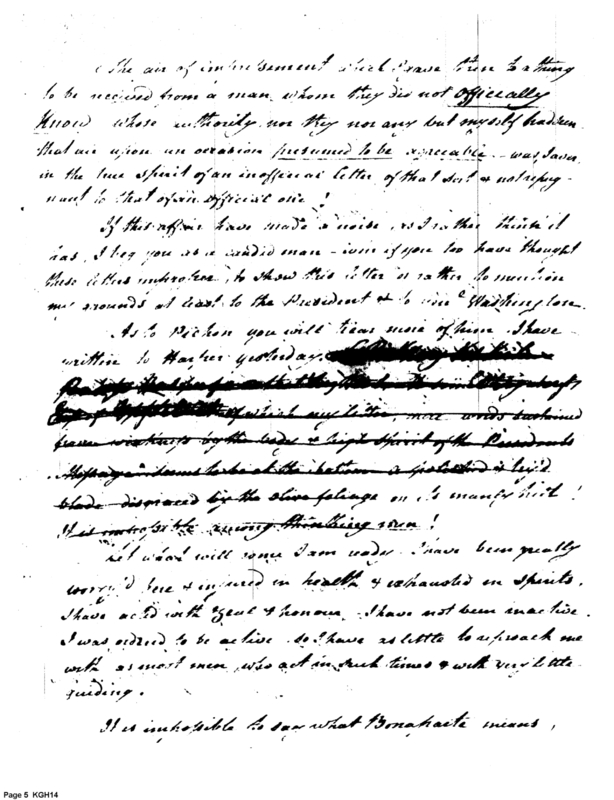 The air of which I gave them to a thing
to be received from a man whom they did not officially
know whose authority nor they nor any but myself had seen
that air upon an occasion presumed to be agreeable was, I aver
in the true spirit of an inofficial letter of that sort & not repug-
nant to that of an official one!
If this affair have made a noise, as I rather think it
has, I beg you as a candid man - even if you too have thought
these letters improper, to show this letter or rather to mention
my grounds at least to the President & to Genl Washington
As to Pichon you will hear more of him I have
written to Harper yesterday
of which my letter, mere words
from weakness by the body & high spirit of the Presidents
Message seems to be at the bottom a polished
blade disgraced by the olive foliage on its manly hilt!
It is impossible among thinking men!
Let what will come I am ready. I have been greatly
worry'd here & injured in health & exhausted in spirits.
I have acted with zeal & honour. I have not been inactive.
I was ordered to be active so I have as little to reproach me
with as most men, who act in such times & with very little
guiding.
It is impossible to say what Bonaparte means,
Page 5 KGH14